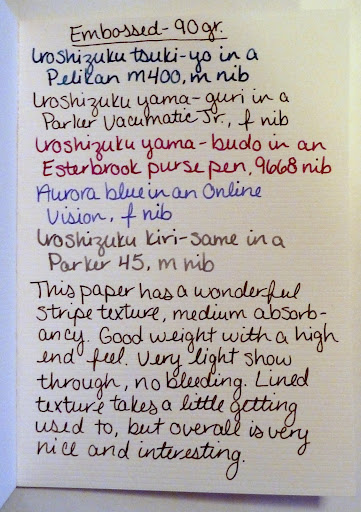 Embossed - 90 gr.
Iroshizuku tsuki-yo in a
Pelikan M400, m nib
Iroshizuku yama-guri in a
Parker Vacumatic Jr., f nib
Iroshizuku yama-budo in an
Esterbrook purse pen, 9668 nib
Aurora blue in an Online
Vision, f nib
Iroshizuku kiri-same in a
Parker 45, m nib
This paper has a wonderful
stripe texture, medium absorb-
ancy. Good weight with a high
end feel. Very light show
through, no bleeding. Lined
texture takes a little getting
used to, but overall is very
nice and interesting.